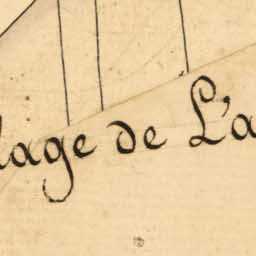 lage de L'a